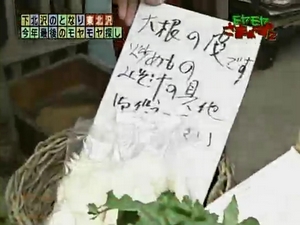 下北沢のとなり東北沢
今年最後のモヤモヤ探し
モヤモヤ
さまぁ～ず2
大根の皮です
いためもの
みそ汁の具 他